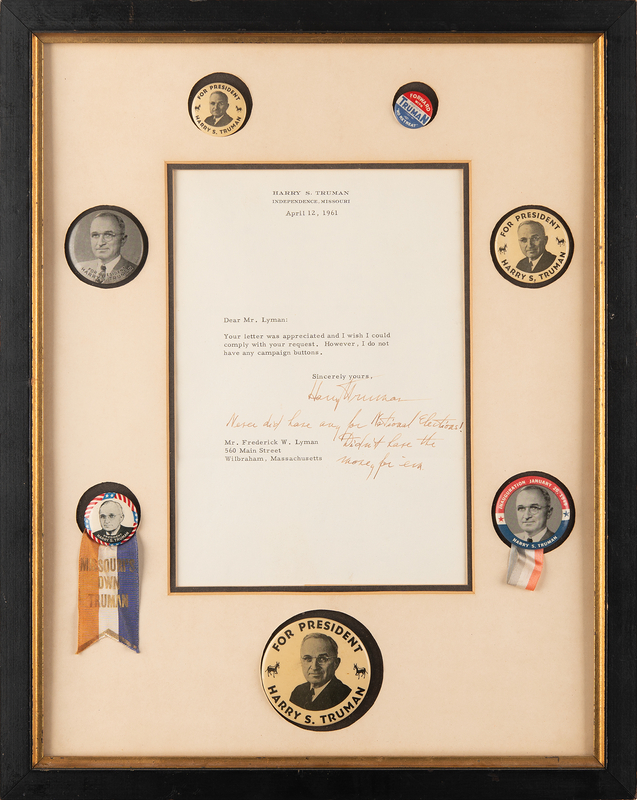 FOR PRESIDENT
HARRY S. TRUMAN
FORWARD
WITH
TRUMAN
NO RETREAT
HARRY S. TRUMAN
INDEPENDENCE, MISSOURI
April 12, 1961
FOR PRESIDENT
HARRY S. TRUMAN
FOR PRESIDENT
HARRY S. TRUMAN
Dear Mr. Lyman:
Your letter was appreciated and I wish I could
comply with your request. However, I do not
have any campaign buttons.
Sincerely yours,
Harry Truman
Never did have any for National Elections!
Didn't have the
money for 'em
Mr. Frederick W. Lyman
560 Main Street
Wilbraham, Massachusetts
HARRY S. TRUMAN
MISSOURI'S
OWN
TRUMAN
INAUGURATION JANUARY 20, 1949
HARRY S. TRUMAN
FOR PRESIDENT
HARRY S. TRUMAN